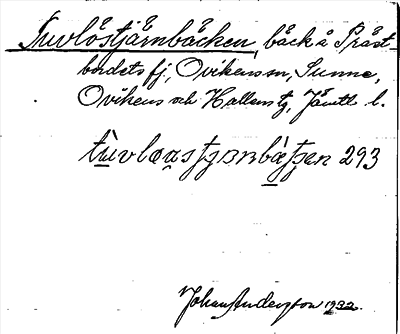 Tuvlöstjärnbäcken, bäck å Präst-
bordets fj, Ovikensn, Sunne,
Ovikens och Hallens tg, Jämtl l.
293
Johan Andersson 1932.